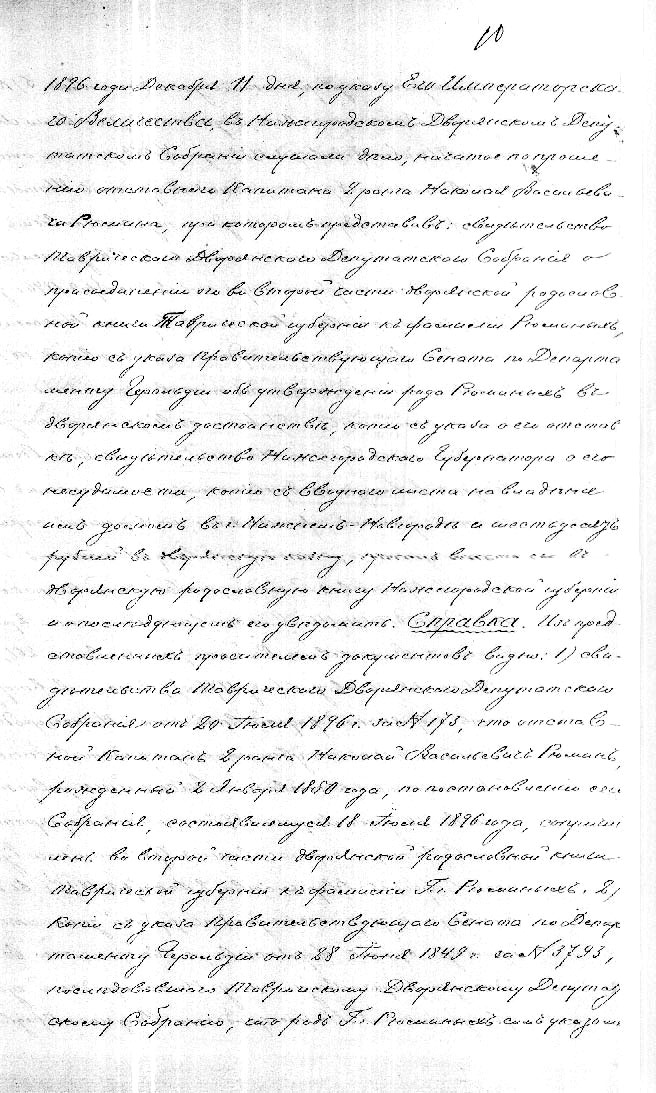 10
1896 года Декабря 11 дня, по указу Его Императорска-
го Величества, въ Нижегородскомъ Дворянскомъ Депу-
татскомъ Собранiи слушали дѣло, начатое по проше-
нiю отставного Капитана 2 ранга Николая Васильеви-
ча Рюмина, при которомъ представивъ: свидѣтельство
Таврическаго Дворянскаго Депутатскаго Собранiя о
присоединенiи его во второй части дворянской родослов-
ной книги Таврической губернiи къ фамилiи Рюминыхъ,
копiю съ указа Правительствующаго Сената по Департа
менту Герольдiи объ утвержденiи рода Рюминыхъ въ
дворянскомъ достоинствѣ, копiю съ указа о его отстав
кѣ, свидѣтельство Нижегородскаго Губернатора о его
несудимости, копiю съ вводнаго листа на владѣнiе
имъ домомъ въ г. Нижнемъ-Новгородѣ и шестьдесятъ
рублей въ дворянскую казну, въ
Дворянскую родословную книгу Нижегородской губернiи
и о послѣдующемъ его увѣдомить. Справка. Изъ пред-
ставленныхъ просителемъ документовъ видно: 1) сви-
дѣтельства Таврическаго Дворянскаго Депутатскаго
Собранiя отъ 20 Iюля 1896 г. за № 173, что отстав-
ной Капитанъ 2 ранга Николай Васильевичъ Рюминъ,
рожденный 2 Января 1850 года, по постановленiю сего
Собранiя, состоявшемуся 18 Iюля 1896 года,
во второй части дворянской родословной книги
Таврической губернiи къ фамилiи Гг. Рюминыхъ. 2)
Копiю съ указа Правительствующаго Сената по Депар
таменту Герольдiи отъ 28 Iюня 1849 г. за № 3793,
послѣдовавшаго Таврическому Дворянскому Депутат
скому Собранiю, что родъ Гг. Рюминыхъ симъ указомъ